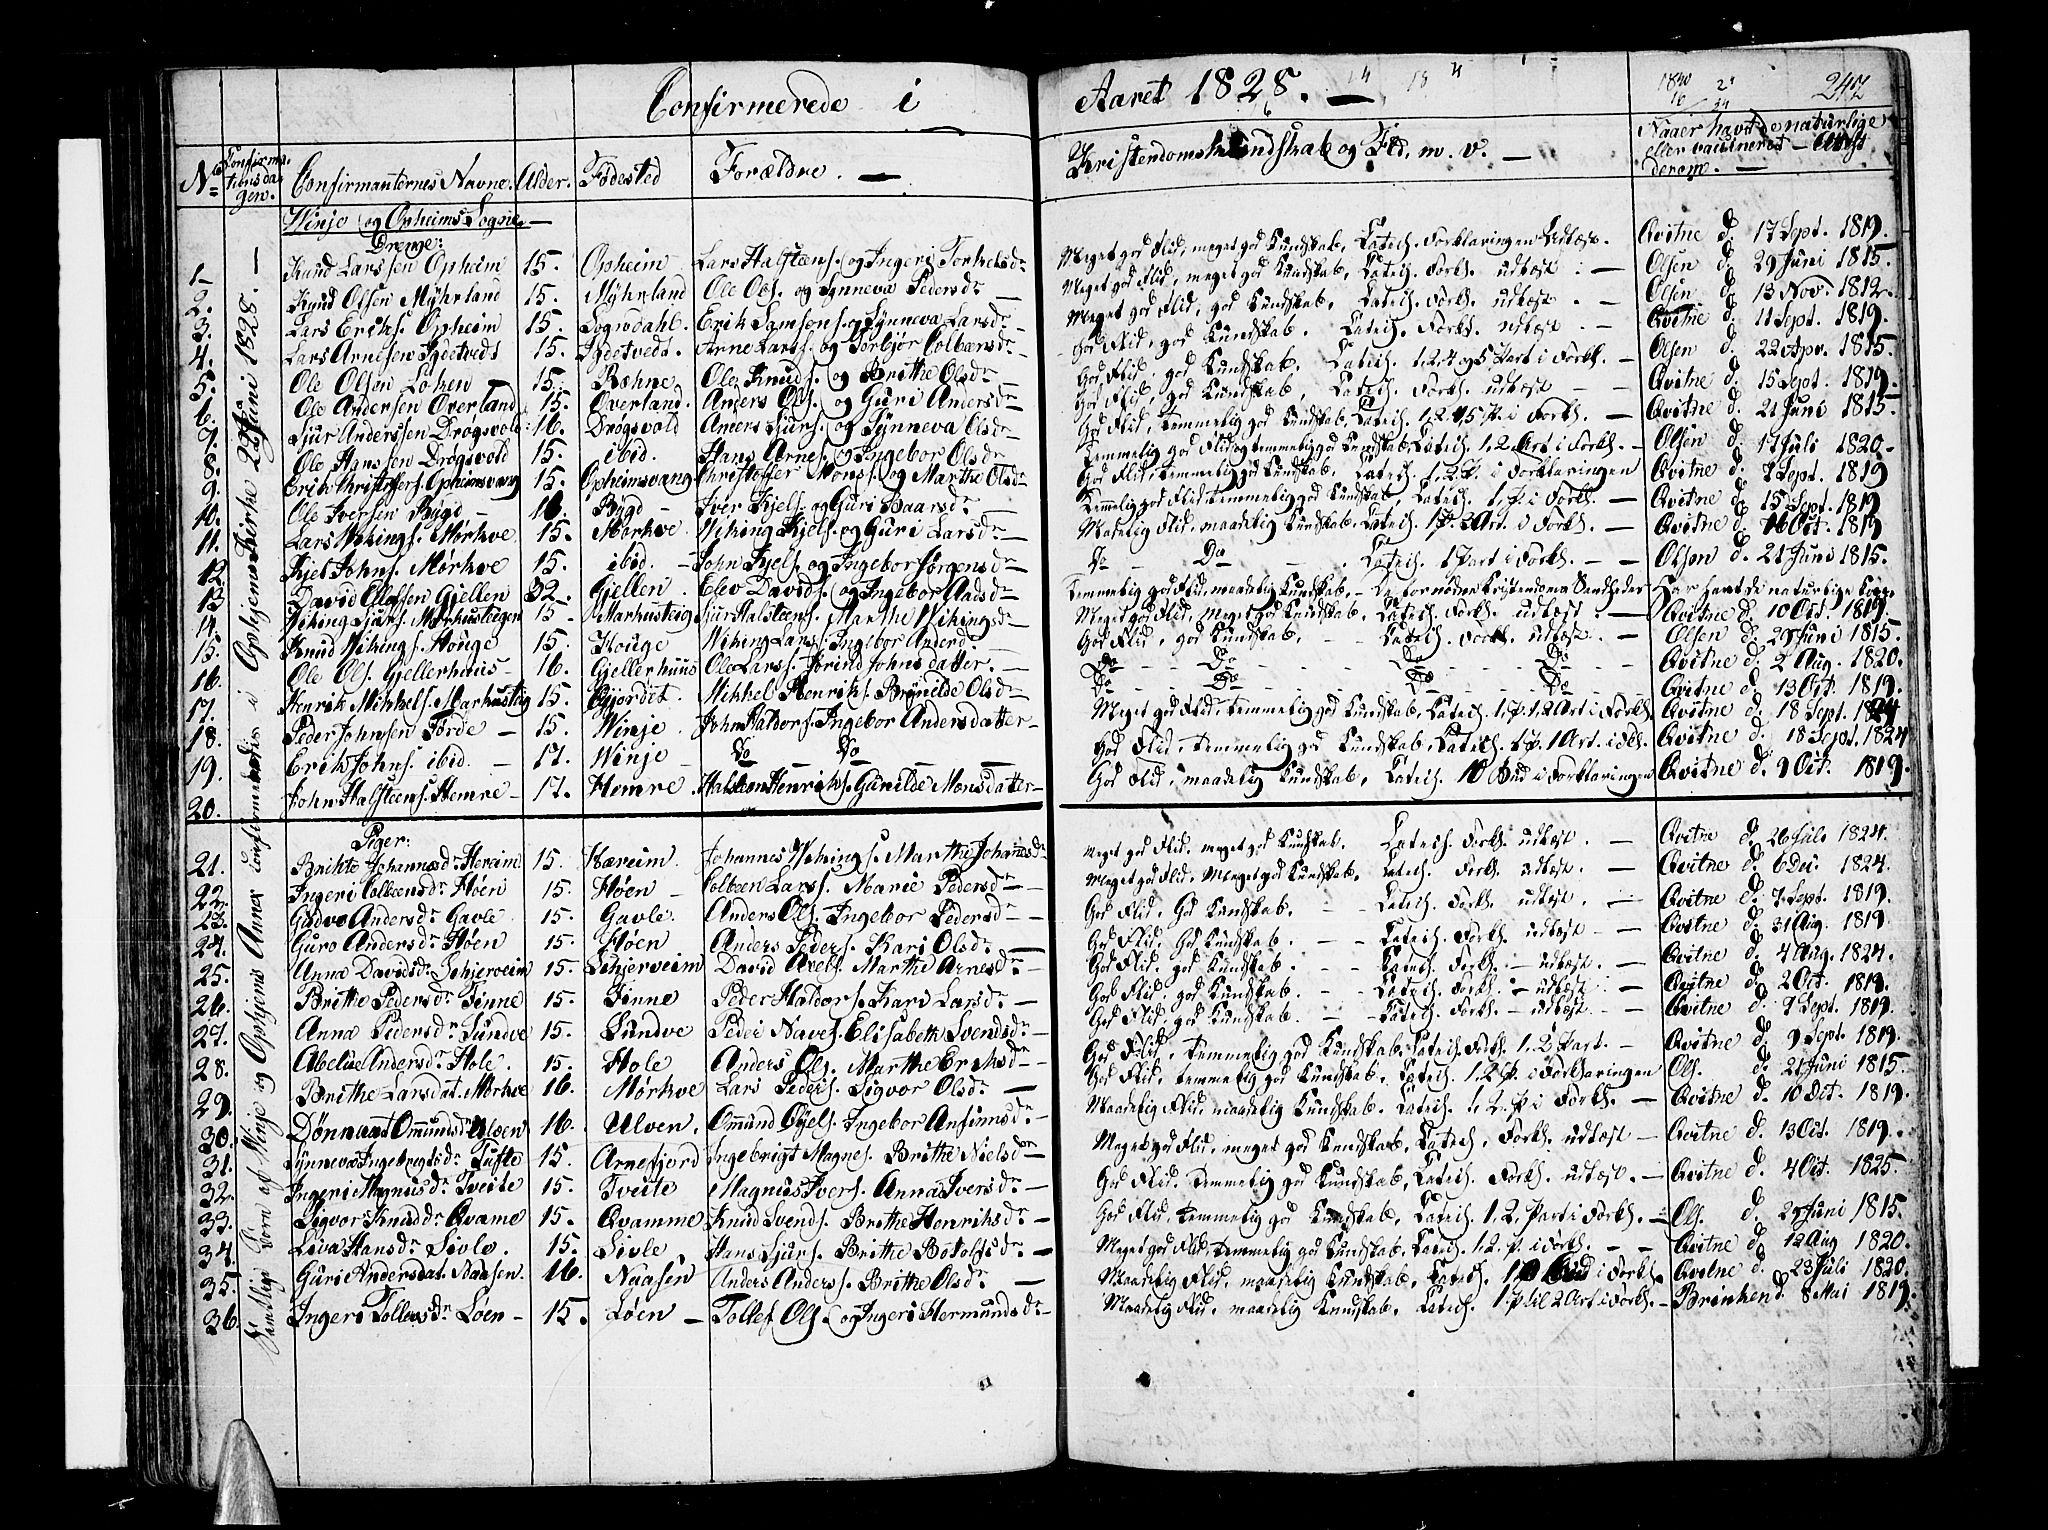 Confirmerede i Aaret 1828. 247
No Confirmationsdagen. Confirmanternes Navne. Alder. Fødested Forældre. Kristendoms Kundskab og Flid. m. v. Naaer havt de naturlige eller vaccineret — Attest derom.
Samtlige Børn af Winje og Ophjems Annex confirmeredis i Ophjems Kirke 1828.
Winje og Opheims Sogne.
Drenge:
1 Knud Larssen Opheim 15. Opheim Lars Halsteens. og Ingeri Torkelsdr Meget god Flid, meget god Kundskab, Catech. Forklaringen udlæst. Qvitne d. 17 Sept. 1819.
2. Knud Olsen Myhrland 15. Myhrland Ole Ols. og Synneva Pedersdr Meget god Flid, meget god Kundskab, Catech. Forkl. udlæst. Olsen d. 29 Juni 1815.
3. Lars Eriks. Opheim 15. Sogndahl. Erik Samsons. og Synneva Larsdr Meget god Flid, god Kundskab, Catech. Forkl. udlæst. Olsen d. 13 Nov. 1812.
4. Lars Arnesen 15. Arne Larss. og Torbjør Colbensdr God Flid, god Kundskab. Catech. Forkl. udlæst. Qvitne d. 11 Sept. 1819.
5. Ole Olsen Løhen 15. Røhne Ole Knuds. og Brithe Olsdr God Flid, god Kundskab, Catech. Part i Forkl. Olsen d. 22 Apr. 1815.
6. Ole Andersen Øverland 15. Øverland. Anders Ols. og Guri Andersdr God Flid, god Kundskab, Catech. Forkl. udlæst Qvitne d. 15 Sept. 1819.
7. Sjur Anderssen Drøgsvold 16. Drøgsvold Anders Sjurs. og Synneva Olsdr God Flid, temmelig god Kundskab, Catech. i Forkl. Qvitne d. 21 Juni 1815.
8. Ole Hanssen Drøgsvold 15. ibid. Hans Arnes. og Ingebor Olsdr Temmelig god Flid og temmelig god Kundskab, Catech. 1, 2 Art. i Forkl. Olsen d. 17 Juli 1820.
9. Erik Christoffers. Opheimsvang 15. Opheimsvang Christoffer Mons. og Marthe Olsdr God Flid, temmelig god Kundskab, Catech. 1, 2 P. i Forklaringen Qvitne d. Sept. 1819
10. Ole Iversen Bygd Bygd Iver Kjels. og Guri Baarsdr Temmelig god Flid, temmelig god Kundskab, Catech. 1 P. i Forkl. Qvitne d. 15 Sept. 1819
11. Lars Wikings. Mørkve 15. Mørkve Wiking Kjels. og Guri Larsdr Maadelig Flid, maadelig Kundskab, Catech. 1 P. 2 Art. i Forkl. Qvitne d. 16 Oct. 1819
12. Kjel Johns. Mørkve 15. ibid. John Kjels. og Ingebor Jørgensdr Do Do Catech. 1 Part i Forkl. Olsen d. 21 Juni 1815.
13. David Ellefsen Gjellen 32. Gjellen Elev Davids. og Ingebor Madsdr Temmelig god Flid, maadelig Kundskab, De fornødne Kristendoms Sandheder Har havt de naturlige
14. Wiking Sjurs. Mørkusteigen 15 Markusteig Sjur Halsteens. Marthe Wikingsdr Meget god Flid, Meget god Kundskab, Catech. Forkl. udlæst. Qvitne d. 10 Oct. 1819.
15. Knud Wikings. Houge 15. Houge Wiking Larss. Ingebor Andersd. God Flid, god Kundskab, Catech. Forkl. udlæst. Olsen d. 29 Juni 1815.
16. Ole Ols. Gjellerhuus 16. Gjellerhuus Ole Larss. Brind Johnsdatter. Do Do Do Do Qvitne d. 2 Aug. 1820.
17. Henrik Mikkels. Markusteig 15. Gjordit. Mikkel Henriks. Brynilde Olsdr Do Do Do Do Qvitne d. 13 Oct. 1819.
18. Peder Johnsen Førde 15. Winje John Haldors. Ingebor Andersdatter Meget god Flid, temmelig god Kundskab, Catech. 1. P. 1. 2 Art i Forkl. Qvitne d. 18 Sept. 1824
19. Erik Johns. ibid. 17. Winje Do Do God Flid, temmelig god Kundskab, Catech. 1 P. 1 Art. i Forkl. Qvitne d. 18 Sept. 1824
20. John Halsteens. Hemre 17. Hemre Halsteen Henriks. Gunilde Monsdatter God Flid, maadelig Kundskab, Catech. 10 Bud i Forklaringen Qvitne d. 9 Oct. 1819.
Piger:
21. Brithe Johannesdr Hæreim 15. Hæreim. Johannes Wikings. Marthe Johansdr Meget god Flid, meget god Kundskab. Catech. Forkl. udlæst. Qvitne d. 26 Juli 1824.
22. Ingeri Colbeensdr Høen 15. Høen Colbeen Larss. Marie Pedersdr Meget god Flid, Meget god Kundskab, Catech. Forkl. udlæst. Qvitne d. 6 Dec. 1824.
23. Gudve Andersdr Gavle 15. Gavle. Anders Ols. Ingebor Pedersdr God Flid, God Kundskab. Catech. Forkl. udlæst. Qvitne d. 7 Sept. 1819.
24. Guro Andersdr Høen 15. Høen Anders Peders. Kari Olsdr God Flid, God Kundskab. Catech. Forkl. udlæst Qvitne d. 31 Aug. 1819.
25. Anna Davidsdr Schjerveim 15. Schjerveim David Axels. Marthe Arnesdr God Flid, god Kundskab. Catech. Forkl. udlæst. Qvitne d. 4 Aug. 1824.
26. Brithe Pedersdr Finne 15. Finne Peder Haldors. Kari Larsdr God Flid, god Kundskab. Catech. Forkl. udlæst Qvitne d. 2 Oct. 1819.
27. Anna Pedersdr Sundve 15. Sundve Peder Naves. Elisabeth Svendsdr God Flid, god Kundskab. Catech. Forkl. udlæst Qvitne d. 9 Sept. 1819.
28. Abelue Andersdr Hole. 15. Hole Anders Ols. Marthe Eriksdr God Flid, temmelig god Kundskab. Catech. Forkl. 1. 2 Part. Qvitne d. 9 Sept. 1819.
29. Brithe Larsdat. Mørkve 16. Mørkve Lars Peders. Sigvor Olsdr God Flid, temmelig god Kundskab, Catech. 1. 2 P. i Forklaringen Ols. d. 21 Juni 1815.
30. Omundsdr Ulven 16. Ulven Omund Gjels. Ingebor Anfinnsdr Maadelig Flid, maadelig Kundskab, Catech. 1. 2. P. i Forkl. Qvitne d. 10 Oct. 1819.
31. Synneva Ingebregtsdr Tufte 15. Arnefjord Ingebrigt Magnes. Brithe Nielsdr Meget god Flid, meget god Kundskab, Catech. Forkl. udlæst Qvitne d. 13 Oct. 1819.
32. Ingeri Magnusdr Tveite 15. Tveite Magnus Ivers. Anna Iversdr God Flid, Temmelig god Kundskab, Catech. Forkl. udlæst. Qvitne d. 4 Oct. 1825.
33. Sigvor Knudsdr Qvame 15. Qvamme Knud Svends. Brithe Henriksdr God Flid, temmelig god Kundskab, Catech. 1. 2. Part i Forkl. Ols. d. 29 Juni 1815.
34. Leiva Hansdr Sivle. 15. Sivle Hans Sjurs. Brithe Botolfsdr Meget god Flid, temmelig god Kundskab, Catech. 1. 2. P. i Forkl. Qvitne d. 12 Aug 1820.
35. Guri Andersdat. Naasen. 16. Naasen Anders Anders. Brithe Olsdr Maadelig Flid, maadelig Kundskab, Catech. i Forkl. Qvitne d. 23 Juli 1820.
36. Ingeri Tollevsdr Løen 15. Løen Tollef Ols. og Ingeri Hermundsdr Maadelig Flid, maadelig Kundskab, Catech. 1. P. til 2 Art i Forkl. Brinken d. 8 Mai 1819.